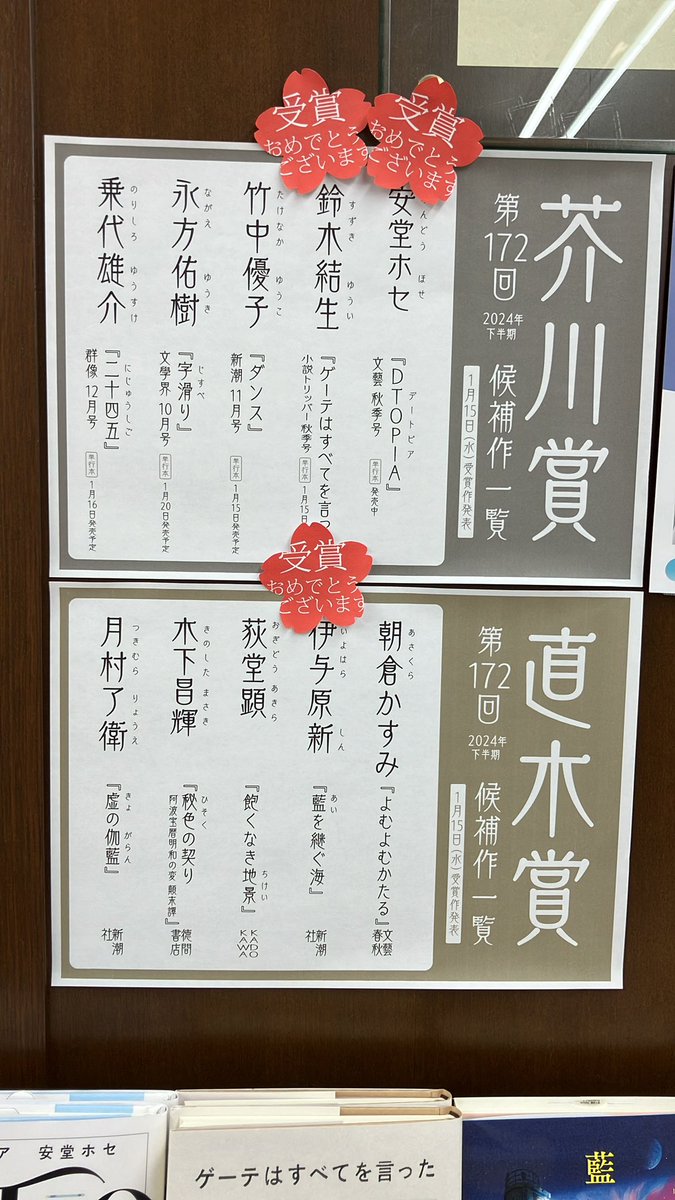 受賞
おめでとう
ございます
受賞
おめでとう
ございます
芥川賞
第172回
2024年
下半期
候補作一覧
1月15日(水)受賞作発表
んどう ほせ
安堂ホセ
デートピア
『DTOPIA』
文藝 秋季号
単行本 発売中
すずき ゆうい
鈴木結生
『ゲーテはすべてを言っ
小説トリッパー 秋季号 単行本 1月15日
たけなか ゆうこ
竹中優子
『ダンス』
新潮 11月号
単行本 1月15日発売予定
ながえ ゆうき
永方佑樹
じすべ
『字滑り』
文學界 10月号
単行本 1月20日発売予定
のりしろ ゆうすけ
乗代雄介
にじゅうしご
『二十四五』
群像 12月号
単行本 1月16日発売予定
受賞
おめでとう
ございます
直木賞
第172回
2024年
下半期
候補作一覧
1月15日(水)受賞作発表
あさくら
朝倉かすみ
『よむよむかたる』
文藝
春秋
いよはら しん
伊与原新
あい
『藍を継ぐ海』
新潮
社
おぎどう あきら
荻堂顕
ちけい
『飽くなき地景』
KADO
KAWA
きのした まさき
木下昌輝
ひそく
『秘色の契り
阿波宝暦明和の変 顛末譚』
徳間
書店
つきむら りょうえ
月村了衛
きょ がらん
『虚の伽藍』
新潮
社
ア 安堂ホセ
ゲーテはすべてを言った
藍